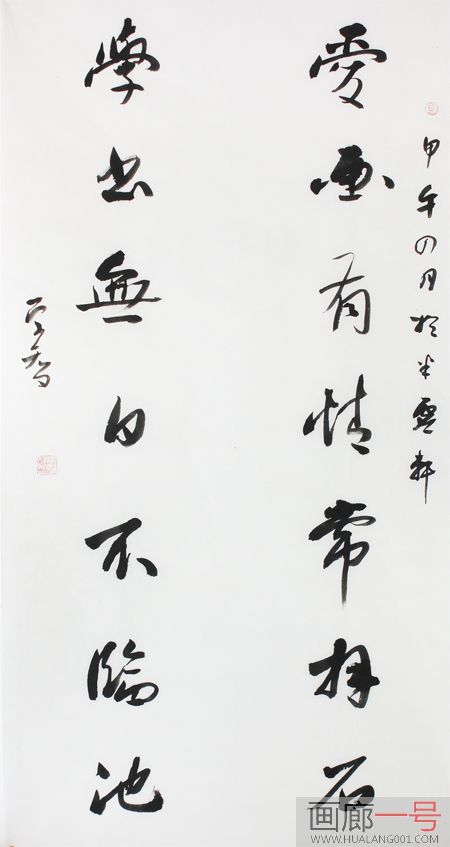 甲午四月於半雲軒
愛畫有情常拜石
學書無日不臨池
画廊一号
WWW.HUALANG001.COM